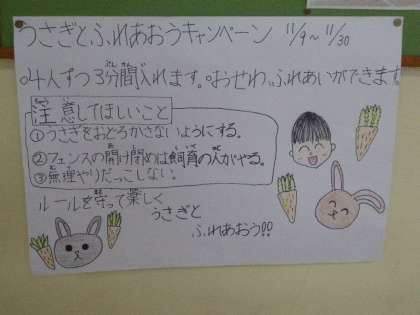 うさぎとふれあおうキャンペーン 11/9～11/30
○4人ずつ3分間入れます。○おせわ、ふれあいができます
注意してほしいこと
①うさぎをおどろかさないようにする。
②フェンスの開け閉めは飼育の人がやる。
③無理やりだっこしない。
ルールを守って楽しく
うさぎと
ふれあおう!!